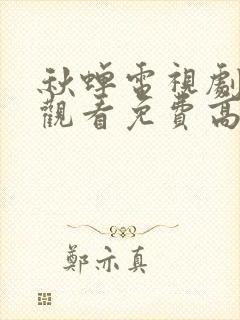 秋蟬電視劇
觀看免費高
鄭亦真